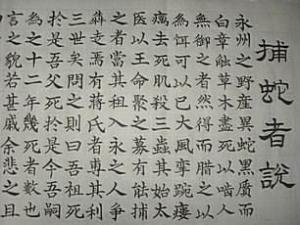 捕蛇者說
永州之野産異蛇黑質而
白章触草木盡死以啮人
無御之者然得而腊之以
為餌可以已大風攣踠瘻
癘去死肌殺三蟲其始太
医以王命聚之募有能捕
之者當其租入永之人争
犇走焉有蒋氏者專其利
三世矣問之則曰吾祖死
於是吾父死於是今吾嗣
為之十二年幾死者數也
言之貌若甚戚余悲之且